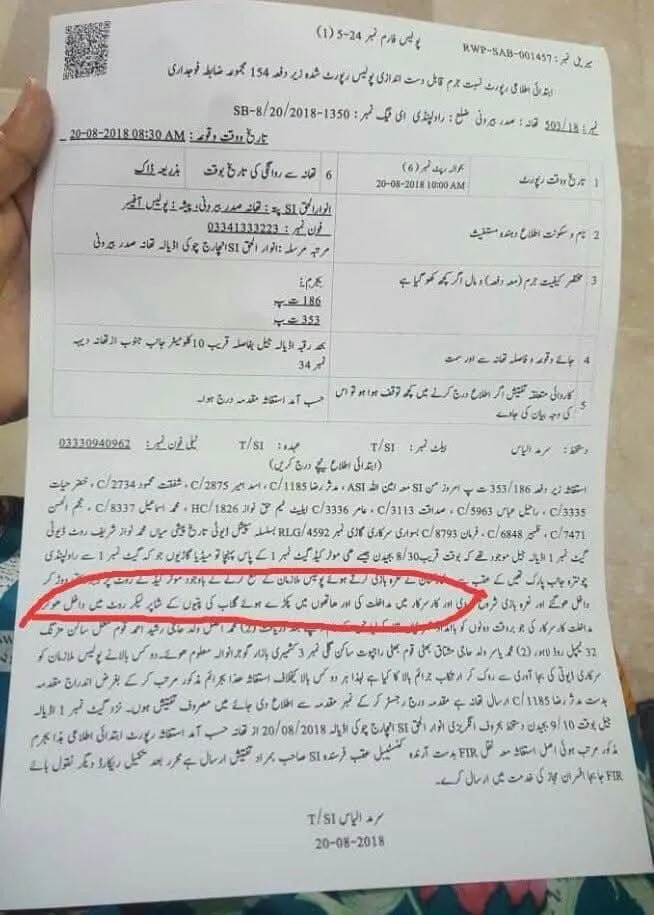 سیریل نمبر: RWP-SAB-001457
پولیس فارم نمبر 24-5 (1)
ابتدائی اطلاعی رپورٹ نسبت جرم قابل دست اندازی پولیس رپورٹ شدہ زیر دفعہ 154 مجموعہ ضابطہ فوجداری
نمبر: 503/18 تھانہ: صدر بیرونی ضلع: راولپنڈی ای ٹیگ نمبر: SB-8/20/2018-1350
تاریخ ووقت وقوعہ: 20-08-2018 08:30 AM
1 تاریخ ووقت رپورٹ بحوالہ رپٹ نمبر (6) 20-08-2018 10:00 AM 6 تھانہ سے روانگی کی تاریخ بوقت بذریعہ ڈاک
2 نام و سکونت اطلاع دہندہ مستغیث انوار الحق SI پتہ: تھانہ صدر بیرونی، پیشہ: پولیس آفیسر
فون نمبر: 03341333223
مرتبہ مرسلہ: انوار الحق SI انچارج چوکی اڈیالہ تھانہ صدر بیرونی
3 مختصر کیفیت جرم (معہ دفعہ) ومال اگر کچھ کھو گیا ہے بجرم:
186 ت پ
353 ت پ
4 جائے وقوعہ و فاصلہ تھانہ سے اور سمت بحد رقبہ اڈیالہ جیل بفاصلہ قریب 10 کلومیٹر جانب جنوب از تھانہ دیہہ
نمبر 34
5 کاروائی متعلقہ تفتیش اگر اطلاع درج کرنے میں کچھ توقف ہوا ہو تو اس
کی وجہ بیان کی جاوے حسب آمد استغاثہ مقدمہ درج ہوا۔
دستخط: سرمد الیاس بیلٹ نمبر: T/SI عہدہ: T/SI ٹیلی فون نمبر: 03330940962
(ابتدائی اطلاع نیچے درج کریں)
استغاثہ زیر دفعہ 353/186 ت پ امروز من SI معہ امین اللہ ASI، مدثر رضا C/1185، اسد امیر C/2875، شفقت محمود C/2734، خضر حیات
C/3335، راحیل عباس C/5963، صداقت C/3113، عامر C/3336 ایلیٹ ٹیم حق نواز HC/1826، محمد اسماعیل C/8337، نجم الحسن
C/7471، ظفیر C/6848، فرمان C/8793 بسواری سرکاری گاڑی نمبر RLG/4592 بسلسلہ سپیشل ڈیوٹی تاریخ پیشی میاں محمد نواز شریف روٹ ڈیوٹی
گیٹ نمبر 1 اڈیالہ جیل موجود تھے کہ بوقت قریب 8/30 بجے دن جیسے ھی موٹر کیڈ گیٹ نمبر 1 کے پاس پہنچا تو میڈیا گاڑیوں جو کہ گیٹ نمبر 1 سے راولپنڈی
چونترہ جانب پارک تھیں کے عقب نے نعرہ بازی کرتے ہوئے پولیس ملازمان کے منع کرنے کے باوجود موٹر کیڈ کے روٹ پر دوڑ کر
داخل ھو گئے اور نعرہ بازی شروع دی اور کار سرکار میں مداخلت کی اور ھاتھوں میں پکڑے ہوئے گلاب کی پتیوں کے شاپر لیکر روٹ میں داخل ھو کر
مداخلت کار سرکار کی جو بروقت دونوں کو محمد اصل ولد حاجی رشید احمد قوم مغل ساکن مزنگ
32 ٹیمپل روڈ لاہور (2) محمد یاسر ولد حاجی مشتاق بھٹی قوم بھٹی راجپوت ساکن گلی نمبر 3 کشمیری بازار گوجرانوالہ معلوم ھوئے۔ دو کس بالا نے پولیس ملازمان کو
سرکاری ڈیوٹی کی بجا آوری سے روک کر ارتکاب جرائم بالا کا کیا ہے لہذا ہر دو کس بالا کیخلاف استغاثہ ھذا بجرائم مذکور مرتب کر کے بغرض اندراج مقدمہ
بدست مدثر رضا C/1185 ارسال تھانہ ہے مقدمہ درج رجسٹر کر کے نمبر مقدمہ سے اطلاع دی جائے میں مصروف تفتیش ہوں۔ نزد گیٹ نمبر 1 اڈیالہ
جیل بوقت 9/10 بجے دن دستخط بحروف انگریزی انوار الحق SI انچارج چوکی اڈیالہ 20/08/2018 از تھانہ حسب آمد استغاثہ رپورٹ ابتدائی اطلاعی ہذا بجرم
مذکور مرتب ہوئی اصل استغاثہ معہ نقل FIR بدست آرندہ کنسٹیبل عقب فرستندہ SI صاحب بمراد تفتیش ارسال ہے محرر بعد تکمیل ریکارڈ دیگر نقول ہائے
FIR جابجا افسران مجاز کی خدمت میں ارسال کرے۔
سرمد الیاس T/SI
20-08-2018